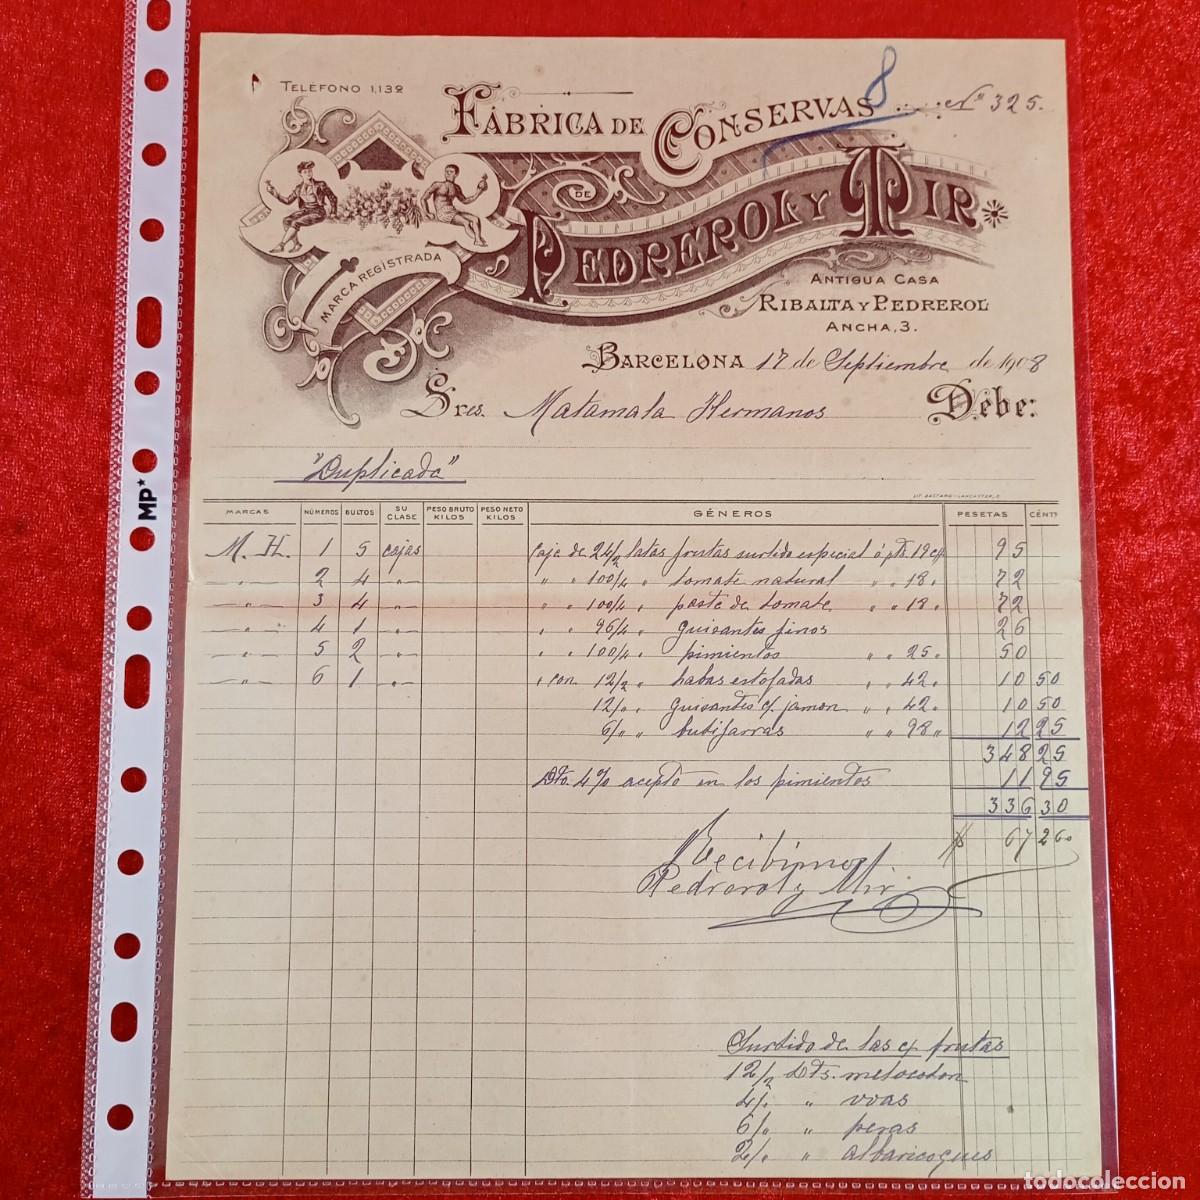 TELÉFONO 1,132
8
Nº 325.
FÁBRICA DE CONSERVAS
DE
PEDREROL Y MIR
MARCA REGISTRADA
ANTIGUA CASA
RIBALTA Y PEDREROL
ANCHA, 3.
BARCELONA 17 de Septiembre de 1908
Sres. Matamala Hermanos Debe:
"Duplicada"
MARCAS NÚMEROS BULTOS SU CLASE PESO BRUTO KILOS PESO NETO KILOS GÉNEROS PESETAS CÉNTS
M. H. 1 5 cajas Caja de 24/2 latas frutas surtido especial á pts. 19 c/ 95
" 2 4 " " " 100/4 " tomate natural " " 18 " 72
" 3 4 " " " 100/4 " paste de tomate " " 18 " 72
" 4 1 " " " 96/4 " guisantes finos 26
" 5 2 " " " 100/4 " pimientos " " 25 " 50
" 6 1 " " con 12/2 " habas estofadas " " 42 " 10 50
12/" " guisantes c/ jamon " " 42 " 10 50
6/" " butifarras " " 98 " 12 25
348 25
Dto. 4% acepto en los pimientos 11 95
336 30
67 260
Recibimos
Pedrerol y Mir
Surtido de las c/ frutas
12/2 Lts. melocoton
4/" " uvas
6/" " peras
2/" " albaricoques
MP*
todocoleccion